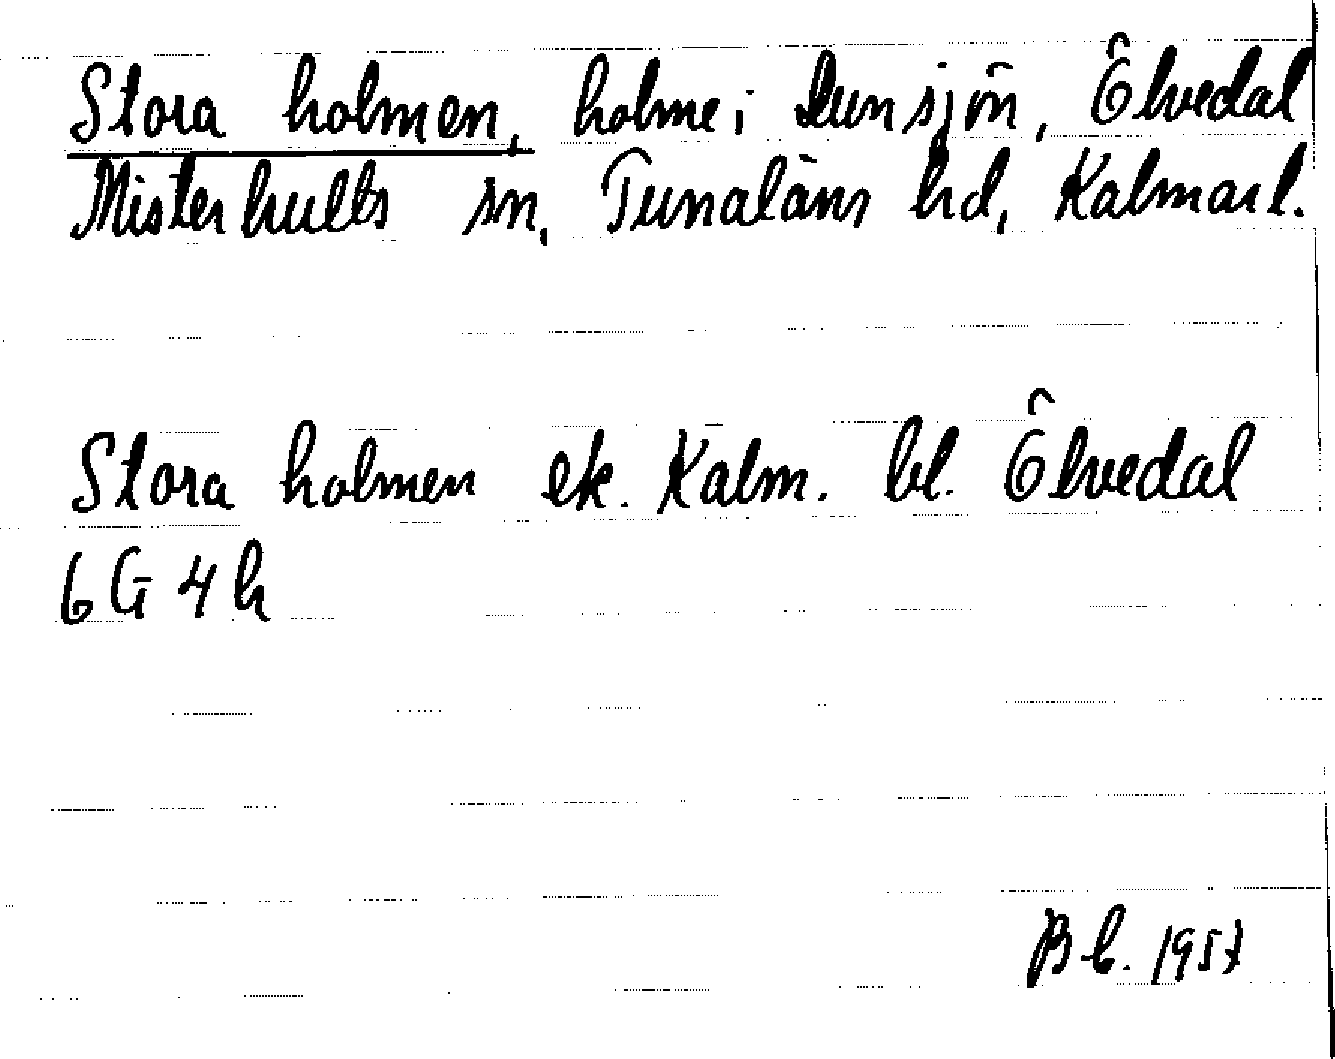 Stora holmen, holme i Dunsjön, Ölvedal
Misterhults sn, Tunaläns hd, Kalmar l.
Stora holmen ek. Kalm. bl. Ölvedal
6 G 4 h
B b. 1957